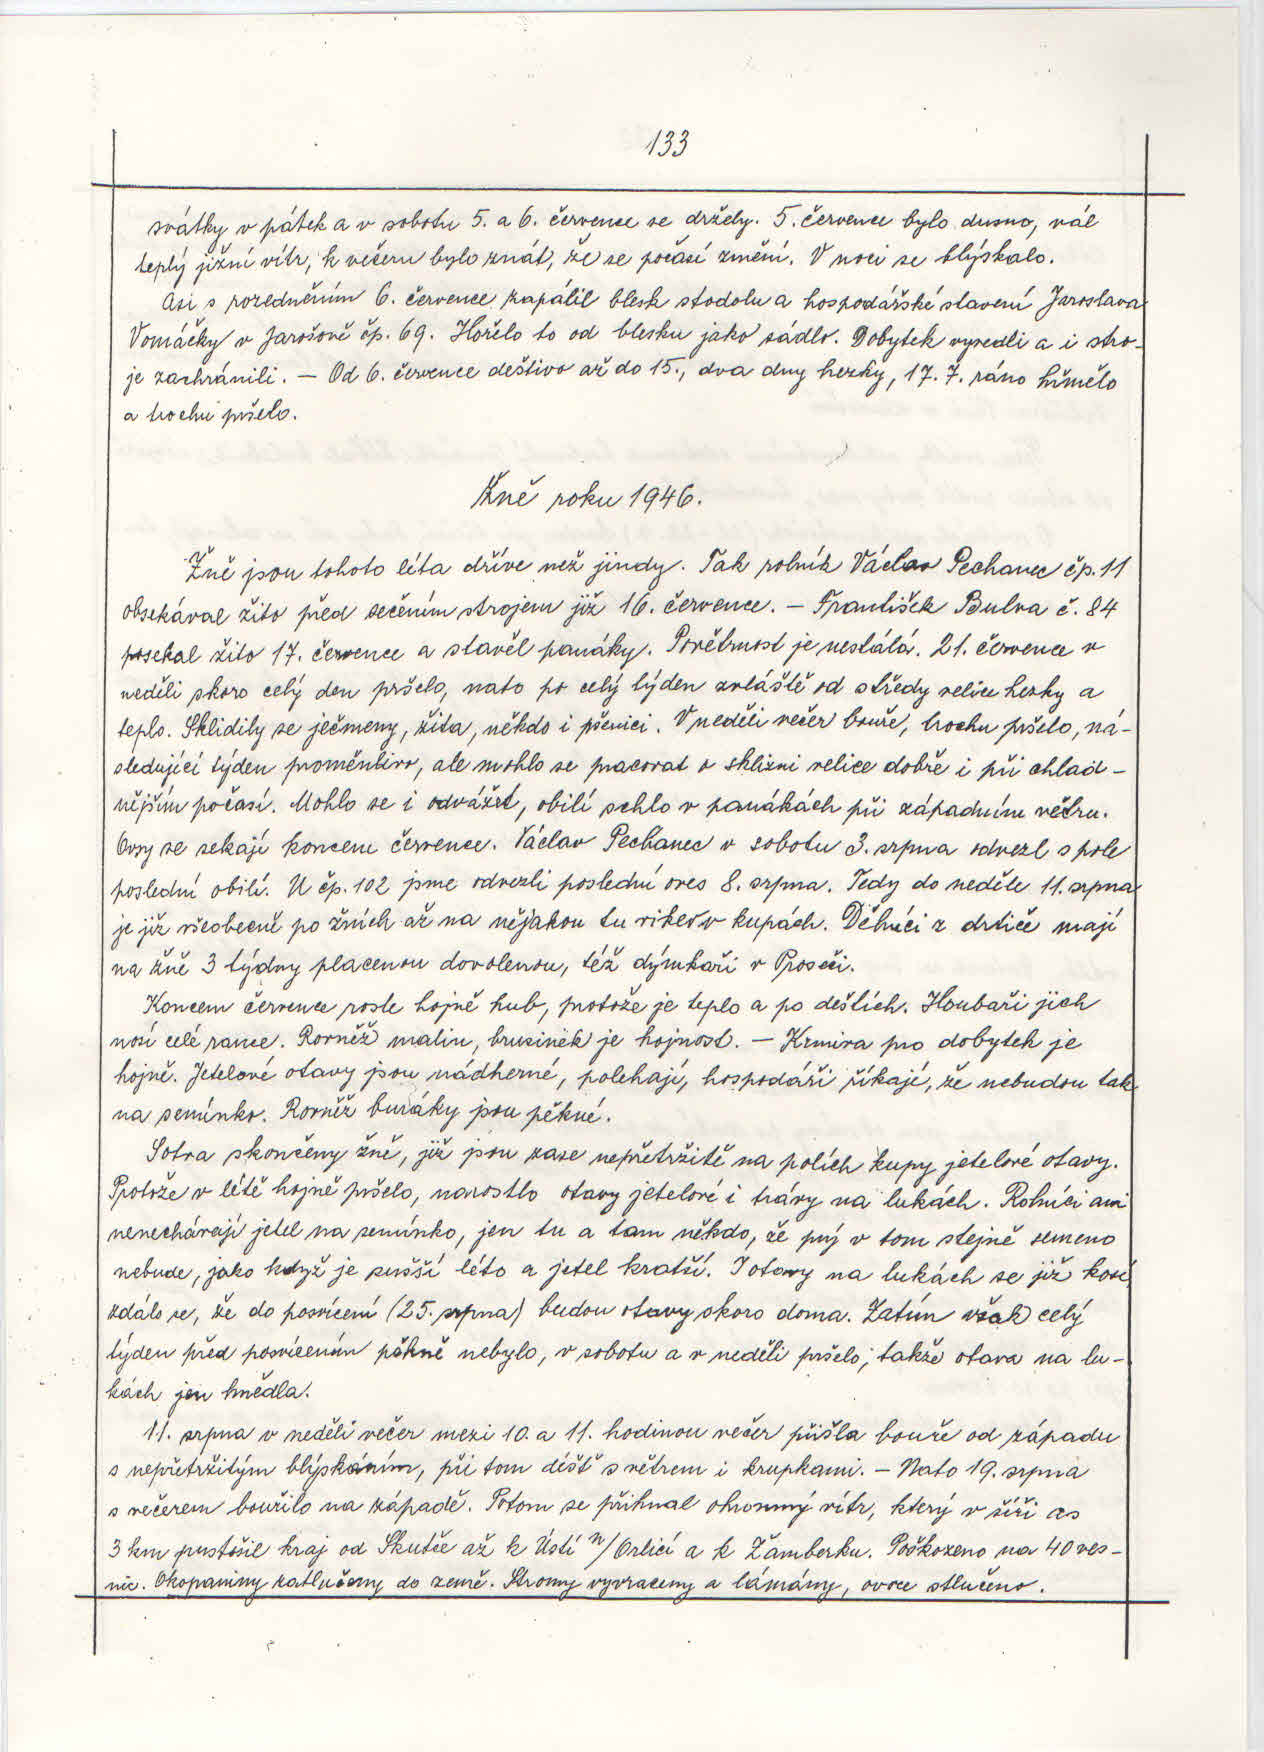 133
svátky v pátek a v sobotu 5. a 6. července se držely. 5. července bylo dusno, vál
teplý jižní vítr, k večeru bylo znát, že se počasí změní. V noci se blýskalo.
Asi s rozedněním 6. července zapálil blesk stodolu a hospodářské stavení Jaroslava
Vomáčky v Jarošově čp. 69. Hořelo to od blesku jako sádlo. Dobytek vyvedli a i stro-
je zachránili. — Od 6. července deštivo až do 15., dva dny hezky, 17. 7. ráno hřmělo
a trochu pršelo.
Žně roku 1946.
Žně jsou tohoto léta dříve než jindy. Tak rolník Václav Pechanec čp. 11
obsekával žito před sečením strojem již 16. července. — František Bulva č. 84
posekal žito 17. července a stavěl panáky. Povětrnost je nestálá. 21. července v
neděli skoro celý den pršelo, nato po celý týden zvláště od středy velice hezky a
teplo. Sklidily se ječmeny, žita, někdo i pšenici. V neděli večer bouře, trochu pršelo, ná-
sledující týden proměnlivo, ale mohlo se pracovat o sklizni velice dobře i při chlad-
nějším počasí. Mohlo se i odvážet, obilí schlo v panákách při západním větru.
Ovsy se sekají koncem července. Václav Pechanec v sobotu 3. srpna odvezl s pole
poslední obilí. U čp. 102 jsme odvezli poslední oves 8. srpna. Tedy do neděle 11. srpna
je již všeobecně po žních až na nějakou tu vikev v kupách. Dělníci z drtiče mají
na žně 3 týdny placenou dovolenou, též dýmkaři v Proseči.
Koncem července roste hojně hub, protože je teplo a po deštích. Houbaři jich
nosí celé rance. Rovněž malin, brusinek je hojnost. — Krmiva pro dobytek je
hojně. Jetelové otavy jsou nádherné, polehají, hospodáři říkají, že nebudou tak
na semínko. Rovněž buráky jsou pěkné.
Sotva skončeny žně, již jsou zase nepřetržitě na polích kupy jetelové otavy.
Protože v létě hojně pršelo, narostlo otavy jetelové i trávy na lukách. Rolníci ani
nenechávají jetel na semínko, jen tu a tam někdo, že prý v tom stejně semeno
nebude, jako když je sušší léto a jetel kratší. I otavy na lukách se již kosí
zdálo se, že do posvícení (25. srpna) budou otavy skoro doma. Zatím však celý
týden před posvícením pěkně nebylo, v sobotu a v neděli pršelo, takže otava na lu-
kách jen hnědla.
11. srpna v neděli večer mezi 10. a 11. hodinou večer přišla bouře od západu
s nepřetržitým blýskáním, při tom déšť s větrem i krupkami. — Nato 19. srpna
s večerem bouřilo na západě. Potom se přihnal ohromný vítr, který v šíři as
3 km pustošil kraj od Skutče až k Ústí n/Orlicí a k Žamberku. Poškozeno na 40 ves-
nic. Okopaniny zatlučeny do země. Stromy vyvraceny a lámány, ovoce stlučeno.